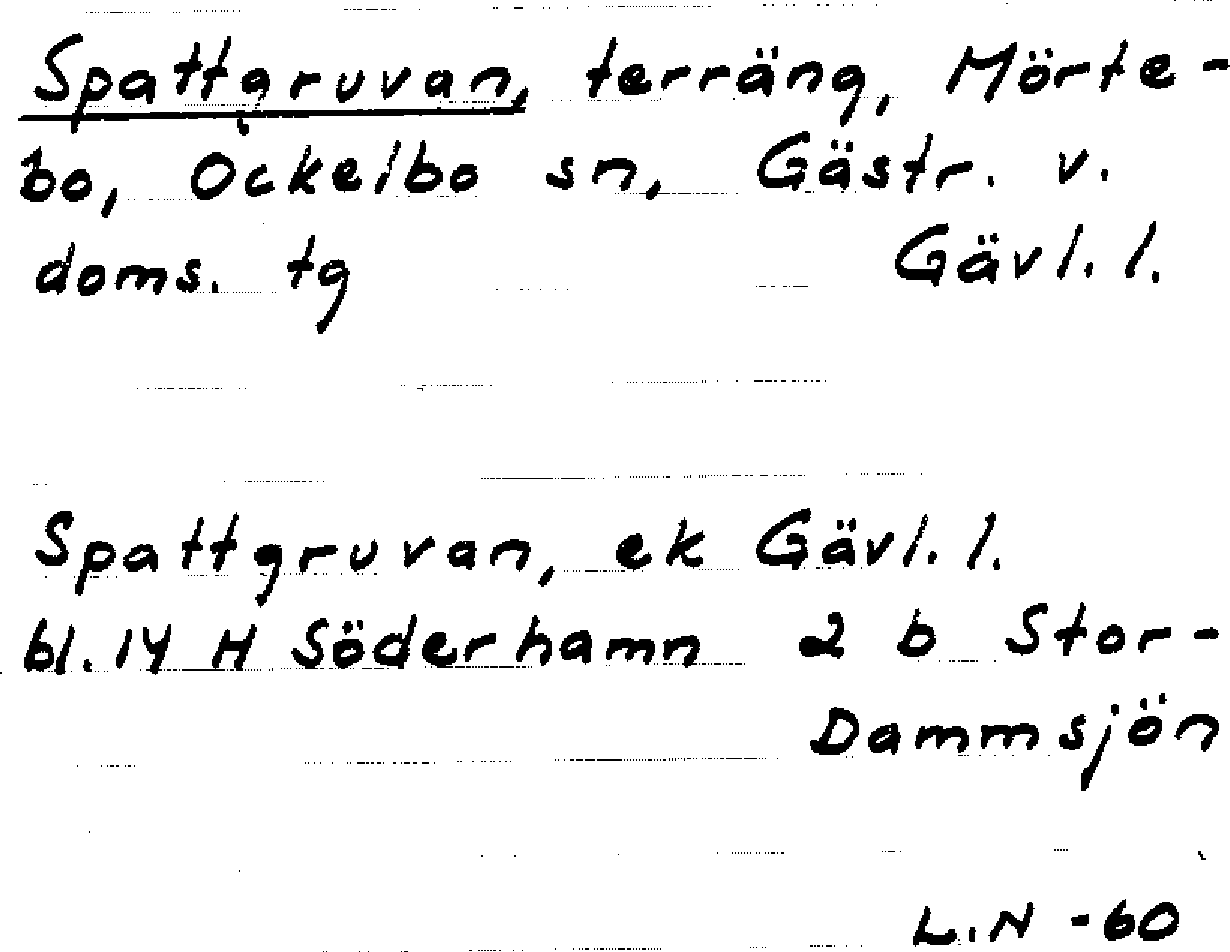 Spattgruvan, terräng, Mörte-
bo, Ockelbo sn, Gästr. v.
doms. tg Gävl. l.
Spattgruvan, ek Gävl. l.
bl. 14 H Söderhamn 2 b Stor-
Dammsjön
L.N -60